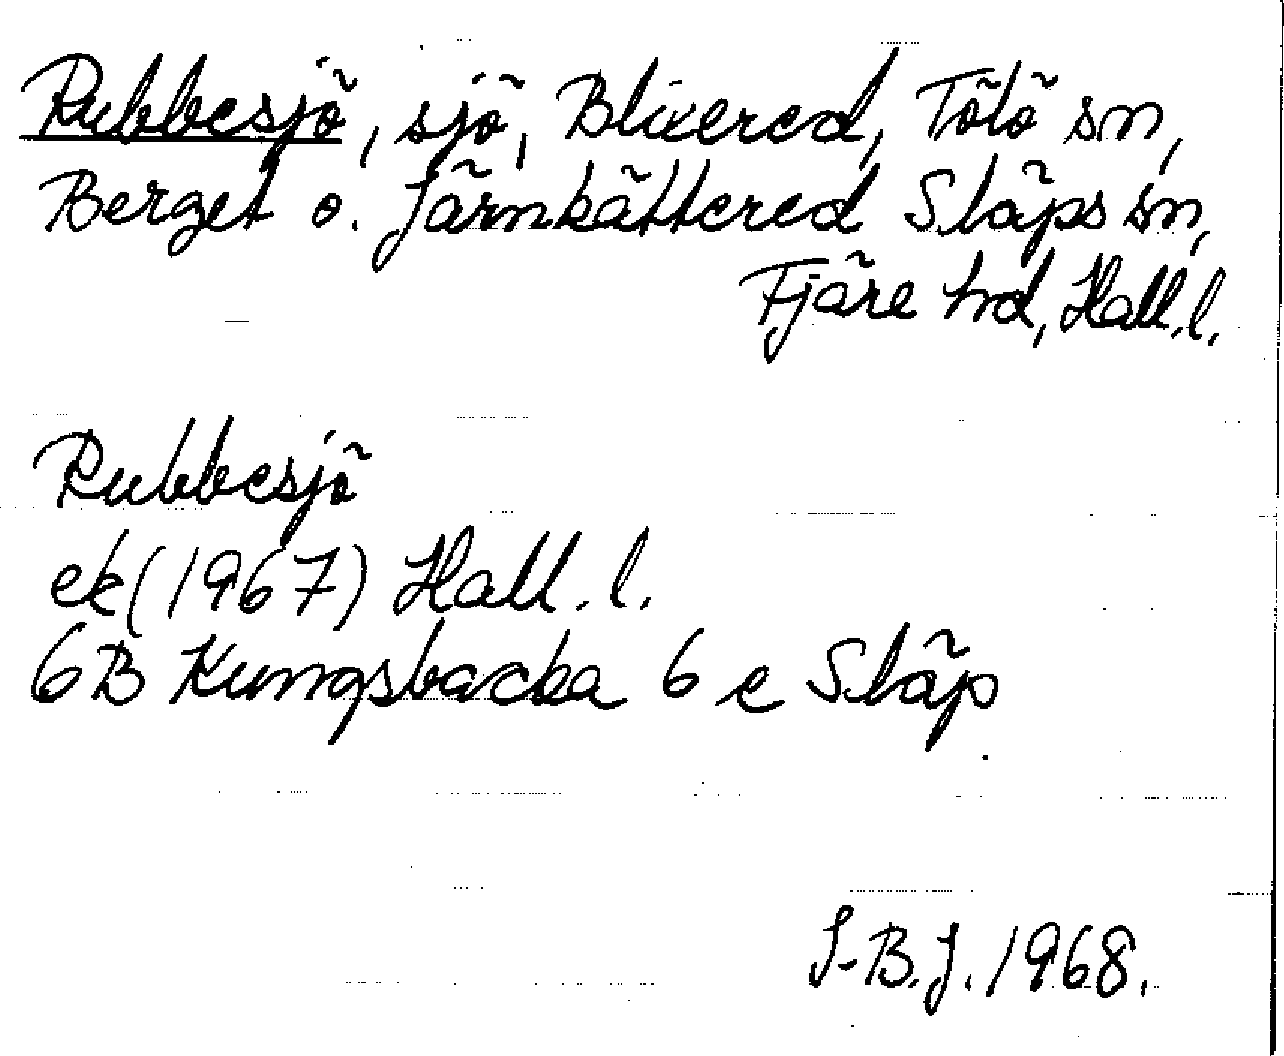 Rubbesjö, sjö, Blixered, Tölö sn,
Berget o. Järnkättered Släps sn,
Fjäre hd, Hall.l.
Rubbesjö
ek (1967) Hall. l.
6B Kungsbacka 6 e Släp
S-B.J. 1968.